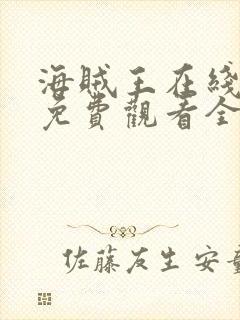 海賊王在綫
免費觀看全
佐藤友生 安